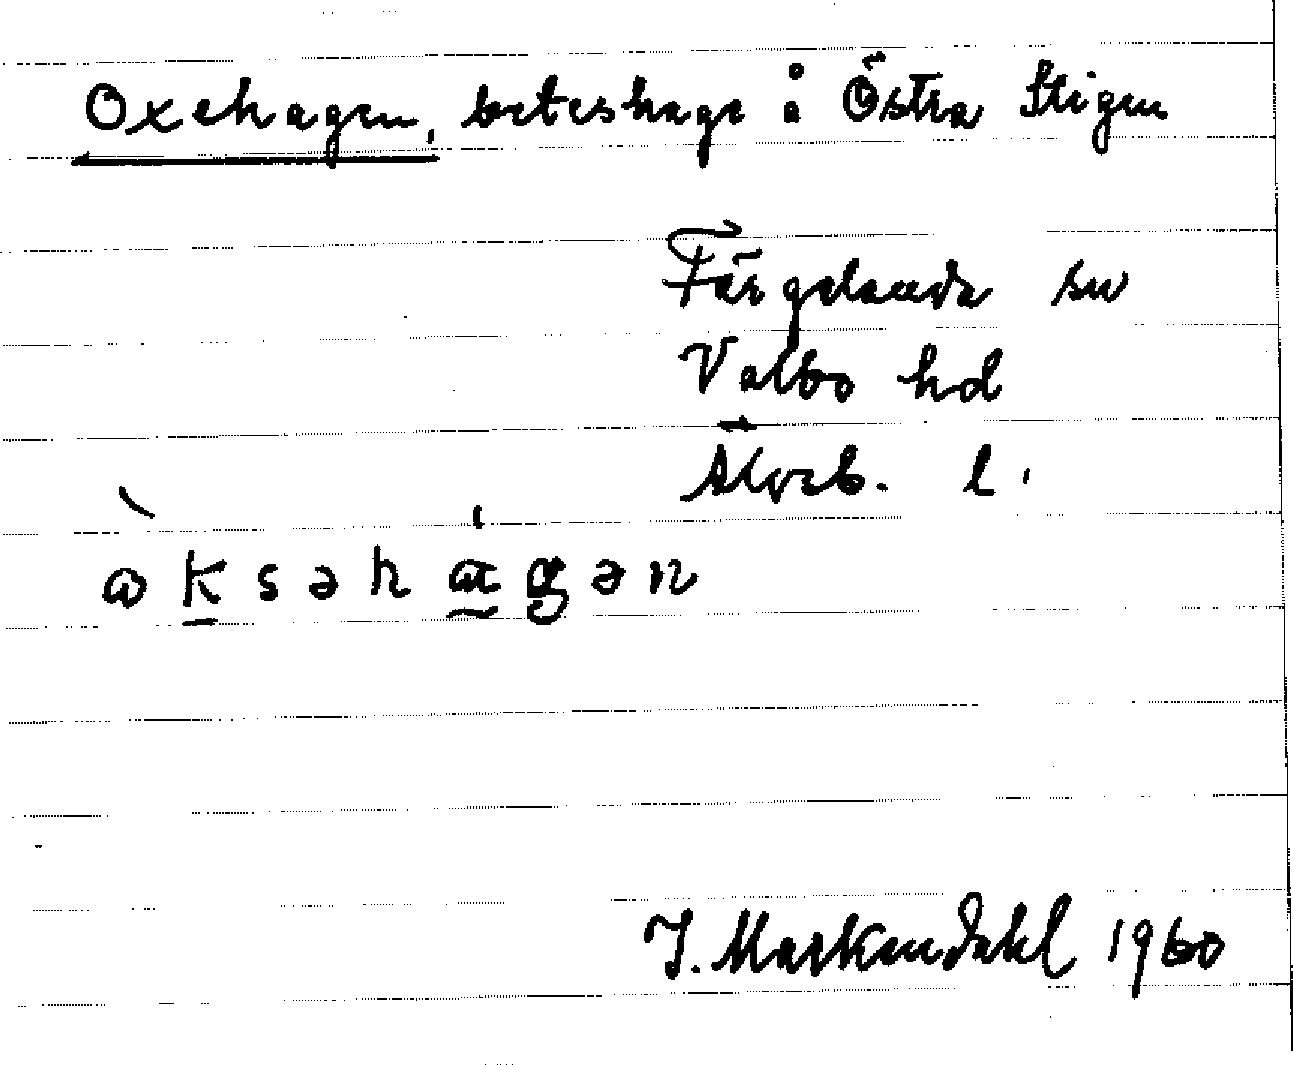 Oxehagen, beteshage å Östra Stigen
Färgelanda sn
Valbo hd
Älvsb. l.
ɷ̀ksəhágən
J. Markendahl 1960